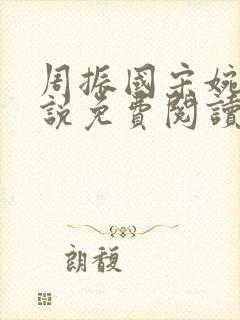 周振國宋婉
說免費閱讀
朗馥